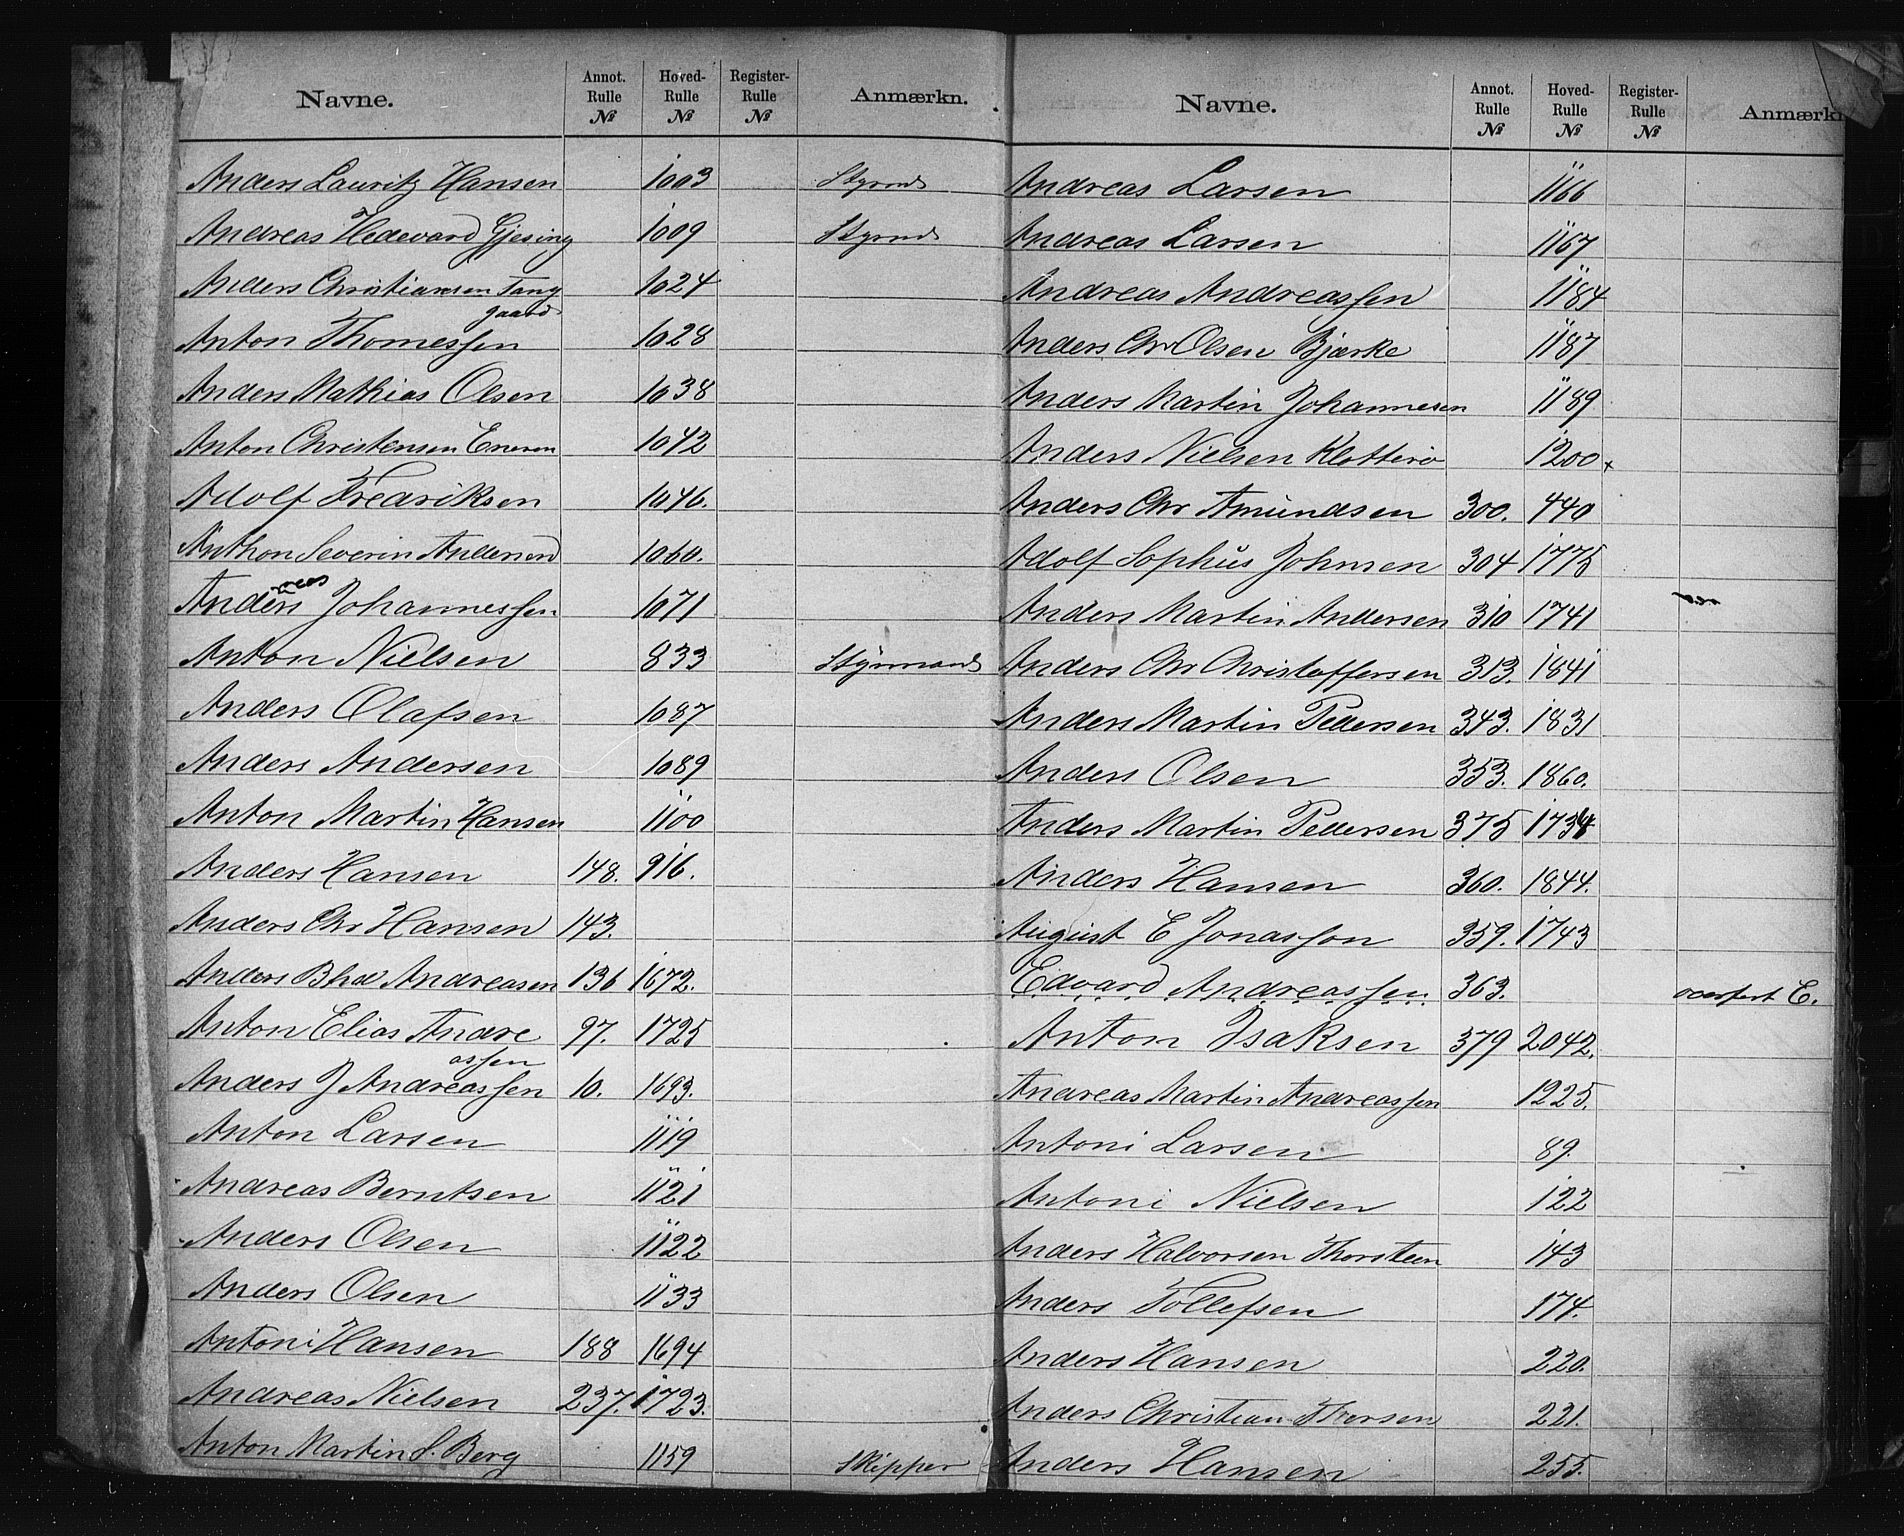 Navne. Annot. Rulle № Hoved-Rulle № Register-Rulle № Anmærkn.
Anders Lauritz Hansen 1003 Styrmd
Andreas Hedevard Gjesing 1009 Styrmd
Anders Christiansen Tang
gaard 1024
Anton Thomessen 1028
Anders Mathias Olsen 1038
Anton Christensen 1042
Adolf Fredriksen 1046.
Anthon Severin Andersen 1060.
Andreas Johannessen 1071
Anton Nielsen 833 Styrmand
Anders Olafsen 1087
Anders Andersen 1089
Anton Martin Hansen 1100
Anders Hansen 148. 916.
Anders Chr Hansen 143.
Anders Bhd Andreasen 136 1672.
Anton Elias Andre
assen 97. 1725
Anders J Andreassen 10. 1693.
Anton Larsen 1119
Andreas Berntsen 1121
Anders Olsen 1122
Anders Olsen 1133
Antoni Hansen 188 1694
Andreas Nielsen 237. 1723.
Anton Martin S. Berg 1159 Skipper
Navne. Annot. Rulle № Hoved-Rulle № Register-Rulle № Anmærkn
Andreas Larsen 1166
Andreas Larsen 1167
Andreas Andreassen 1184
Anders Chr Olsen Bjærke 1187
Anders Martin Johannesen 1189
Anders Nielsen Klotterø 1200 x
Anders Chr Amundsen 300. 440
Adolf Sophus Johnsen 304 1775
Anders Martin Andersen 310 1741
Anders Chr Christoffersen 313. 1841
Anders Martin Pedersen 343. 1831
Anders Olsen 353. 1860.
Anders Martin Pedersen 375 1734
Anders Hansen 360. 1844.
August E Jonasson 359. 1743
Edvard Andreassen 363. overført E.
Anton Isaksen 379 2042.
Andreas Martin Andreassen 1225.
Antoni Larsen 89.
Antoni Nielsen 122
Anders Halvorsen Thorsteen 143
Anders Tollefsen 174.
Anders Hansen 220.
Anders Christian Thorsen 221.
Anders Hansen 255.